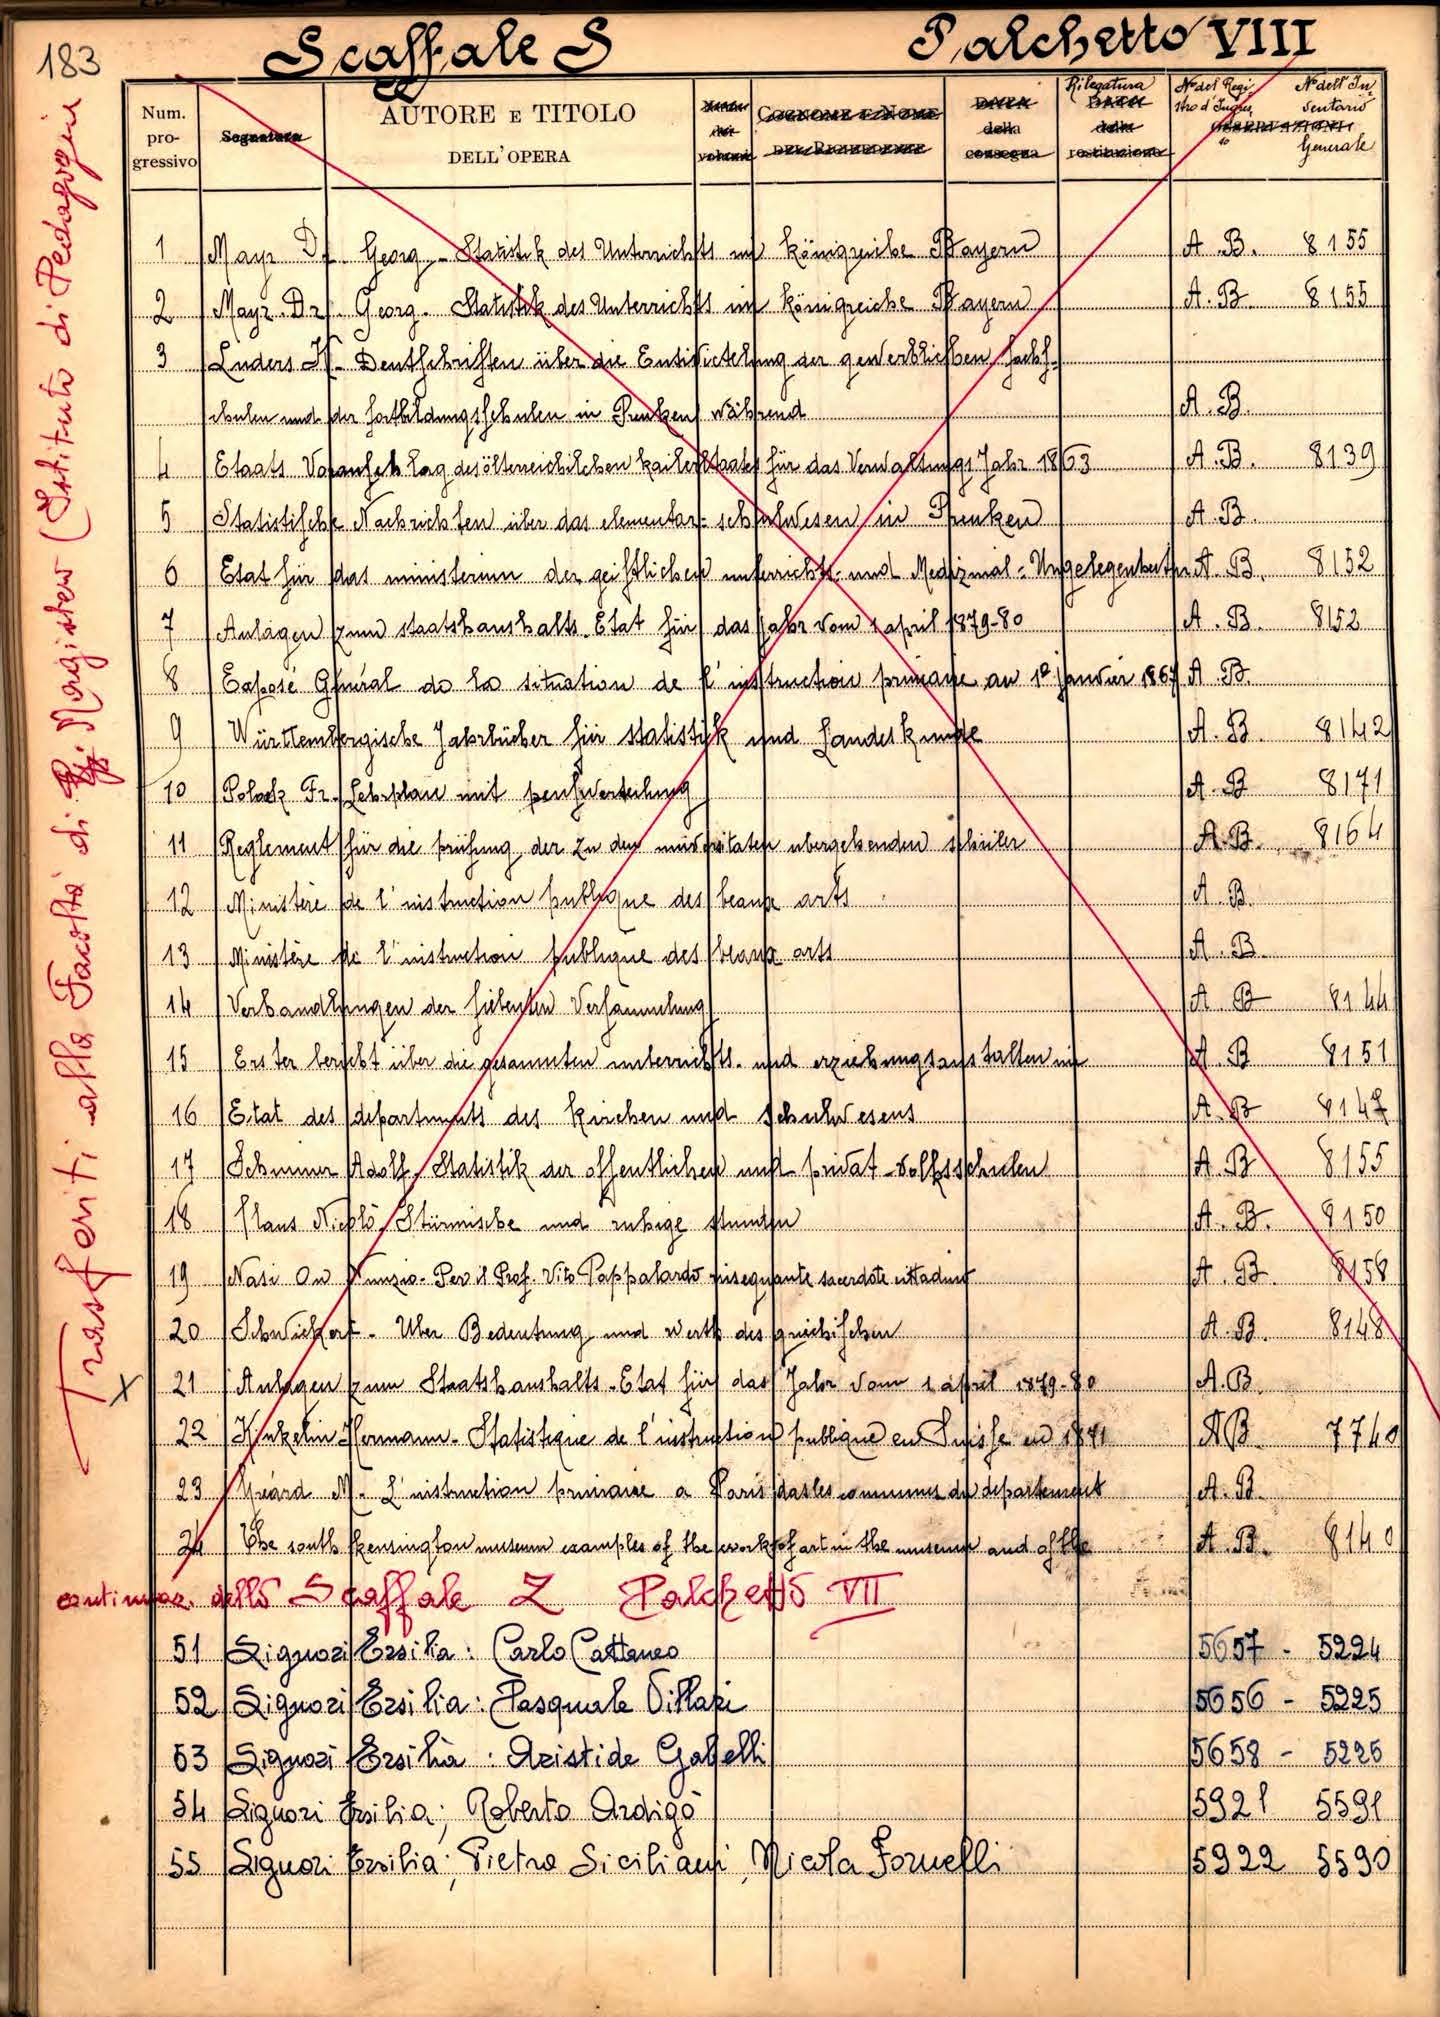 183
Scaffale S Palchetto VIII
Num. progressivo
Segnatura
AUTORE E TITOLO DELL'OPERA
COGNOME E NOME DEL RICHIEDENTE
DATA della consegna
Rilegatura
DATA della restituzione
N° del Registro d'Ingres.
OSSERVAZIONI
N° dell'Inventario Generale
Trasferiti alla Facoltà di Magistero (Istituto di Pedagogia
1 Mayr Dr. Georg - Statistik des Unterrichts im königreiche Bayern A. B. 8155
2 Mayr. Dr. Georg. Statistik des Unterrichts im königreiche Bayern A. B 8155
3 Luders K - Denkschriften über die Entwickelung der gewerblichen fachs-
chulen und der fortbildungsschulen in Preuken während A. B.
4 Etaats Voranschlag des österreichischen kaiserstaates für das Verwaltungs Jahr 1863 A. B. 8139
5 Statistische Nachrichten über das elementar-schulwesen in Preuken A. B.
6 Etat für das ministerium der geistlichen unterrichts- und Medizinal-Ungelegenheiten A. B. 8152
7 Anlagen zum staatshaushalts-Etat für das Jahr vom 1 april 1879-80 A. B. 8152
8 Exposé Général de la situation de l'instruction primaire au 1er janvier 1867 A. B.
9 Württembergische Jahrbücher für statistik und Landeskunde A. B. 8142
10 Polack Fr. Lehrplan mit A. B 8171
11 Reglement für die prüfung der zu den universitaten ubergehenden schüler A. B. 8164
12 Ministère de l'instruction publique des beaux arts A. B.
13 Ministère de l'instruction publique des beaux arts A. B
14 Verhandlungen der siebenten Versammlung A B 8144
15 Erster bericht über die gesammten unterrichts- und erziehungsanstalten im A. B 8151
16 Etat des departments des kirchen und schulwesens A. B 8147
17 Schimmer Adolf. Statistik der offentlichen und privat-volksschulen A. B 8155
18 Claus Nicolò. Stürmische und ruhige stunden A. B. 8150
19 Nasi On Nunzio - Per il Prof. Vito Pappalardo insegnante sacerdote cittadino A. B. 8158
20 Schwickert - Uber Bedeutung und werth des griechischen A. B. 8148
X 21 Anlagen zum Staatshaushalts-Etat für das Jahr vom 1 april 1879-80 A. B.
22 Kinkelin Hermann - Statistique de l'instruction publique en Suisse en 1871 A B 7740
23 Gréard M - L'instruction primaire a Paris dasles communes du departement A. B.
24 The south kensington museum examples of the works of art in the museum and of the A. B. 8140
continuaz. dello Scaffale Z Palchetto VII
51 Signori Ersilia: Carlo Cattaneo 5657 - 5224
52 Signori Ersilia: Pasquale Villari 5656 - 5225
53 Signori Ersilia: Aristide Gabelli 5658 - 5226
54 Signori Ersilia; Roberto Ardigò 5921 5591
55 Signori Ersilia; Pietro Siciliani, Nicola Fornelli 5922 5590